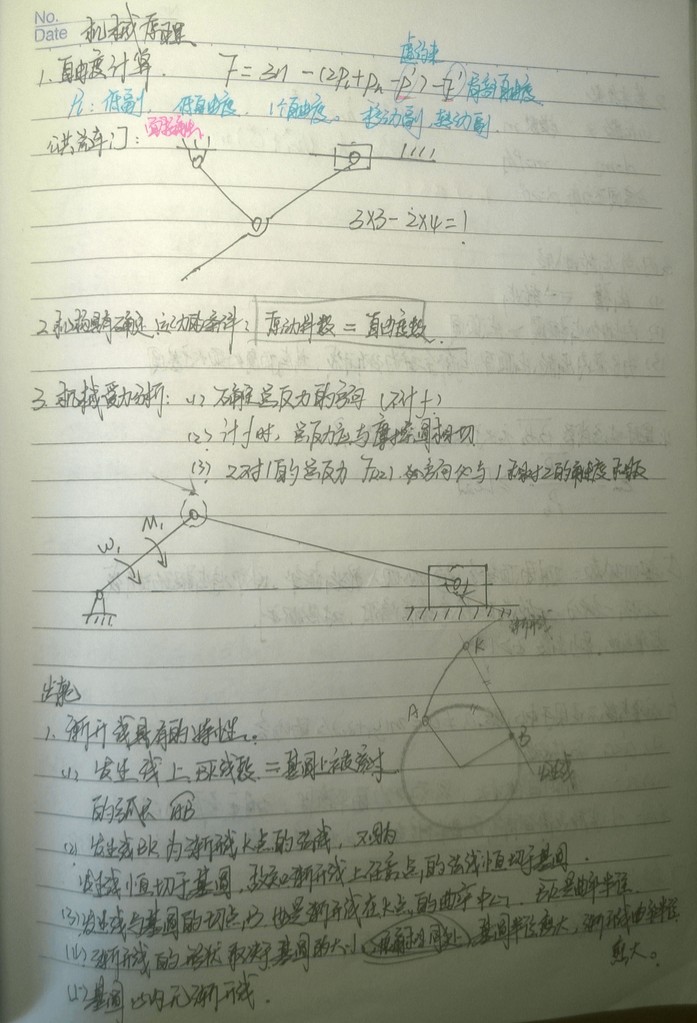 No.
Date 机械原理
虚约束
1. 自由度计算. F = 3n - (2Pl + Ph - P') - F' 局部自由度
Pl: 低副, 低自由度, 1个自由度。移动副, 转动副.
公共汽车门:
3×3 - 2×4 = 1
2. 机构具有确定运动的条件: 原动件数 = 自由度数.
3. 机械受力分析: (1) 不确定总反力的方向 (不计f)
(2) 计f时, 总反力应与摩擦圆相切
(3) 2对1的总反力 的方向 与1相对2的角速度
M1
W1
渐开线
K
A
B
发生线
齿轮
1. 渐开线具有的特性:
(1) 发生线上BK线段 = 基圆上被滚过
的弧长 AB
(2) 发生线BK为渐开线K点的法线, 又因为
发生线恒切于基圆, 故知渐开线上任意点的法线恒切于基圆.
(3) 发生线与基圆的切点B也是渐开线在K点的曲率中心, BK是曲率半径
(4) 渐开线的形状取决于基圆的大小, 基圆半径愈大, 渐开线曲率半径
愈大。
(5) 基圆以内无渐开线.